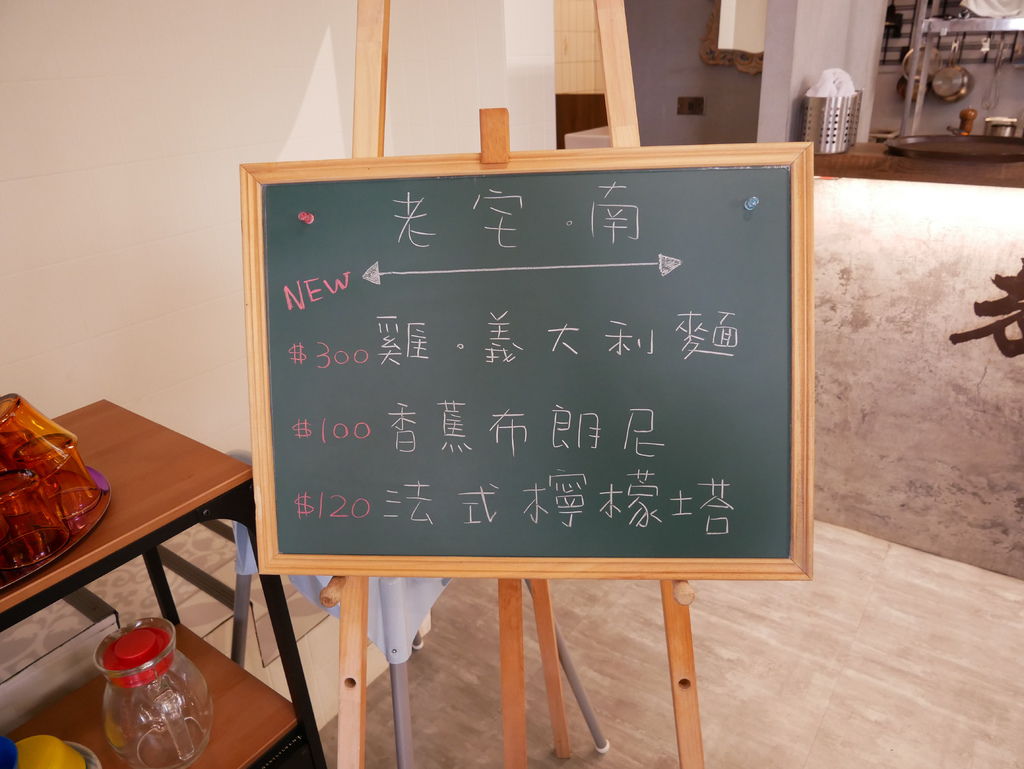 老宅.南
NEW
$300 雞.義大利麵
$100 香蕉布朗尼
$120 法式檸檬塔
老